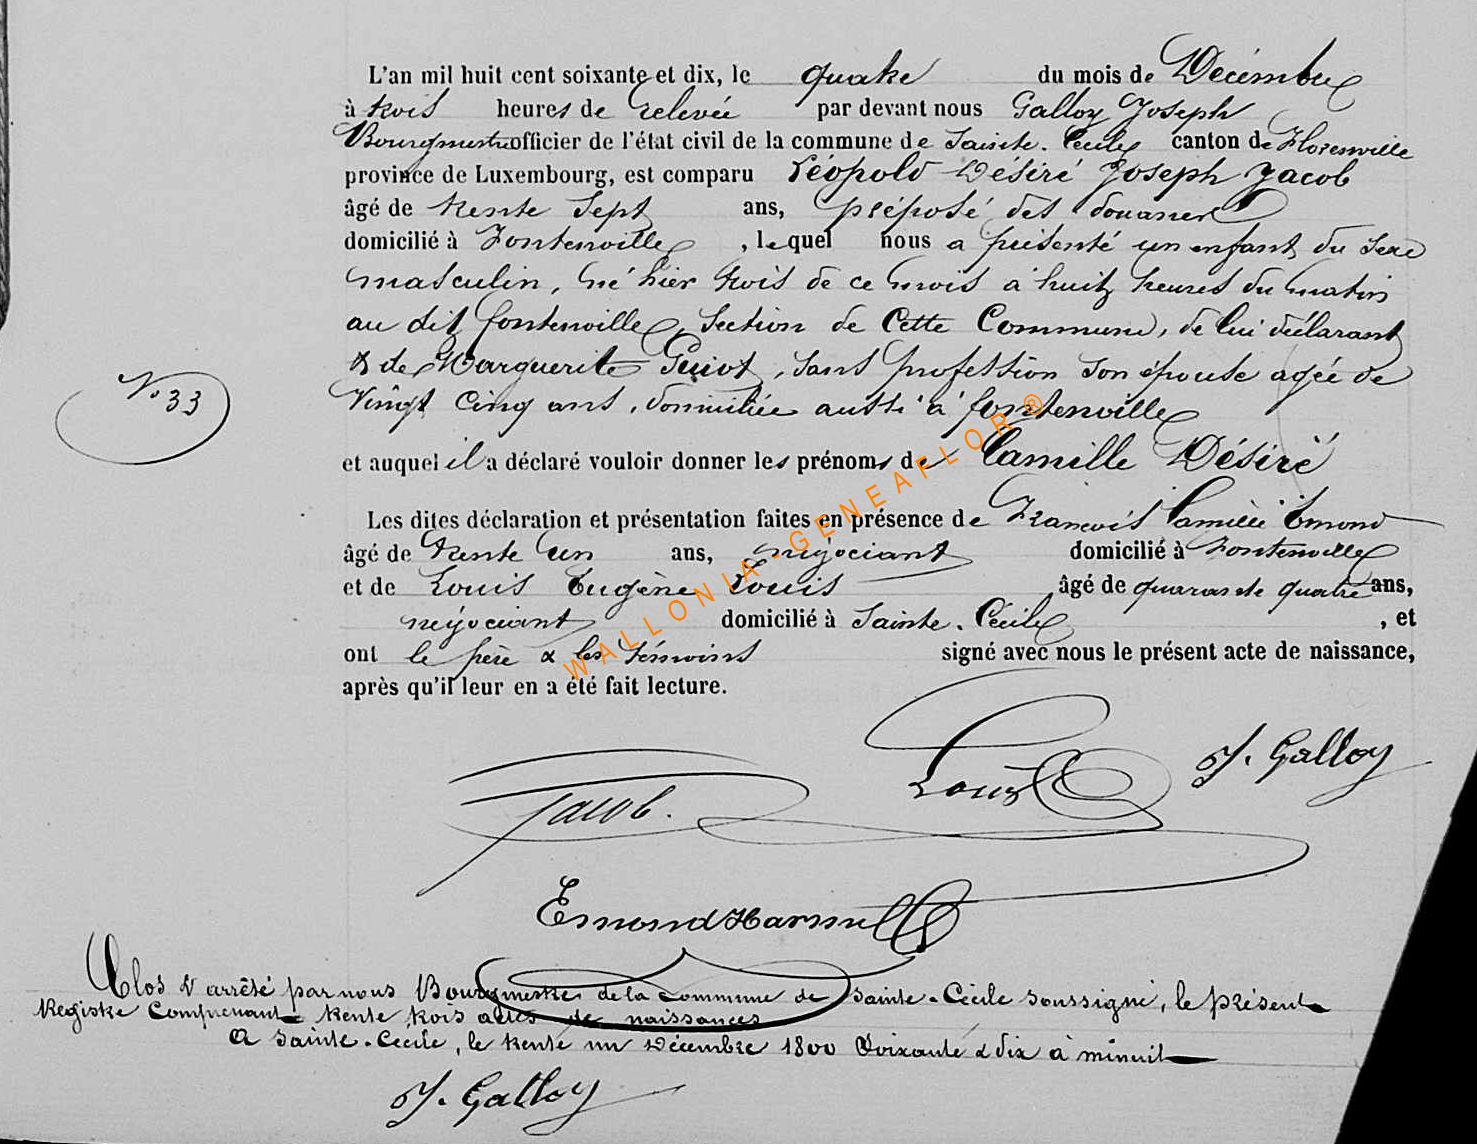 L'an mil huit cent soixante et dix, le quatre du mois de Décembre
à trois heures de relevée par devant nous Galloy Joseph
Bourgmestre officier de l'état civil de la commune de Sainte-Cécile canton de Florenville
province de Luxembourg, est comparu Léopold Désiré Joseph Jacob
âgé de trente sept ans, préposé des douanes
domicilié à Fontenoille, lequel nous a présenté un enfant du sexe
masculin, né hier trois de ce mois à huit heures du matin
au dit fontenoille, section de cette Commune, de lui déclarant
& de Marguerite Guiot, sans profession son épouse agée de
Vingt cinq ans, domiciliée aussi à fontenoille
N° 33
et auquel il a déclaré vouloir donner les prénoms de Camille Désiré
Les dites déclaration et présentation faites en présence de François Camille Emond
âgé de trente un ans, négociant domicilié à Fontenoille
et de Louis Eugène Louis âgé de quarante quatre ans,
négociant domicilié à Sainte-Cécile, et
ont le père & les témoins signé avec nous le présent acte de naissance,
après qu'il leur en a été fait lecture.
WALLONIA-GENEAFLOR ®
Louis J. Galloy
Jacob.
Emond Harmel
Clos & arrêté par nous Bourgmestre de la Commune de Sainte-Cécile soussigné, le présent
Registre Comprenant trente trois actes de naissances
A Sainte-Cécile, le trente un Décembre 1800 Soixante & dix à minuit
J. Galloy